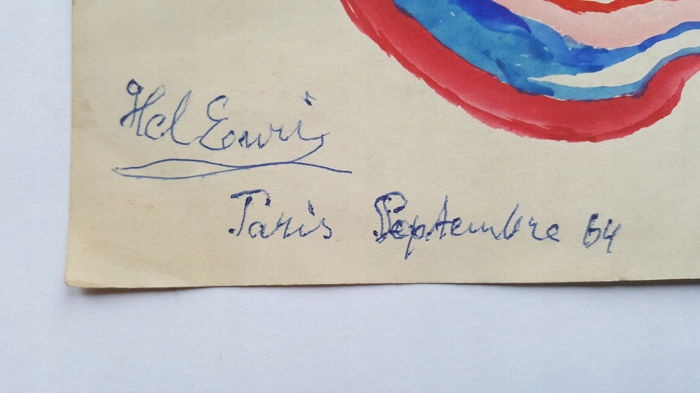 Hel Enri
Paris Septembre 64